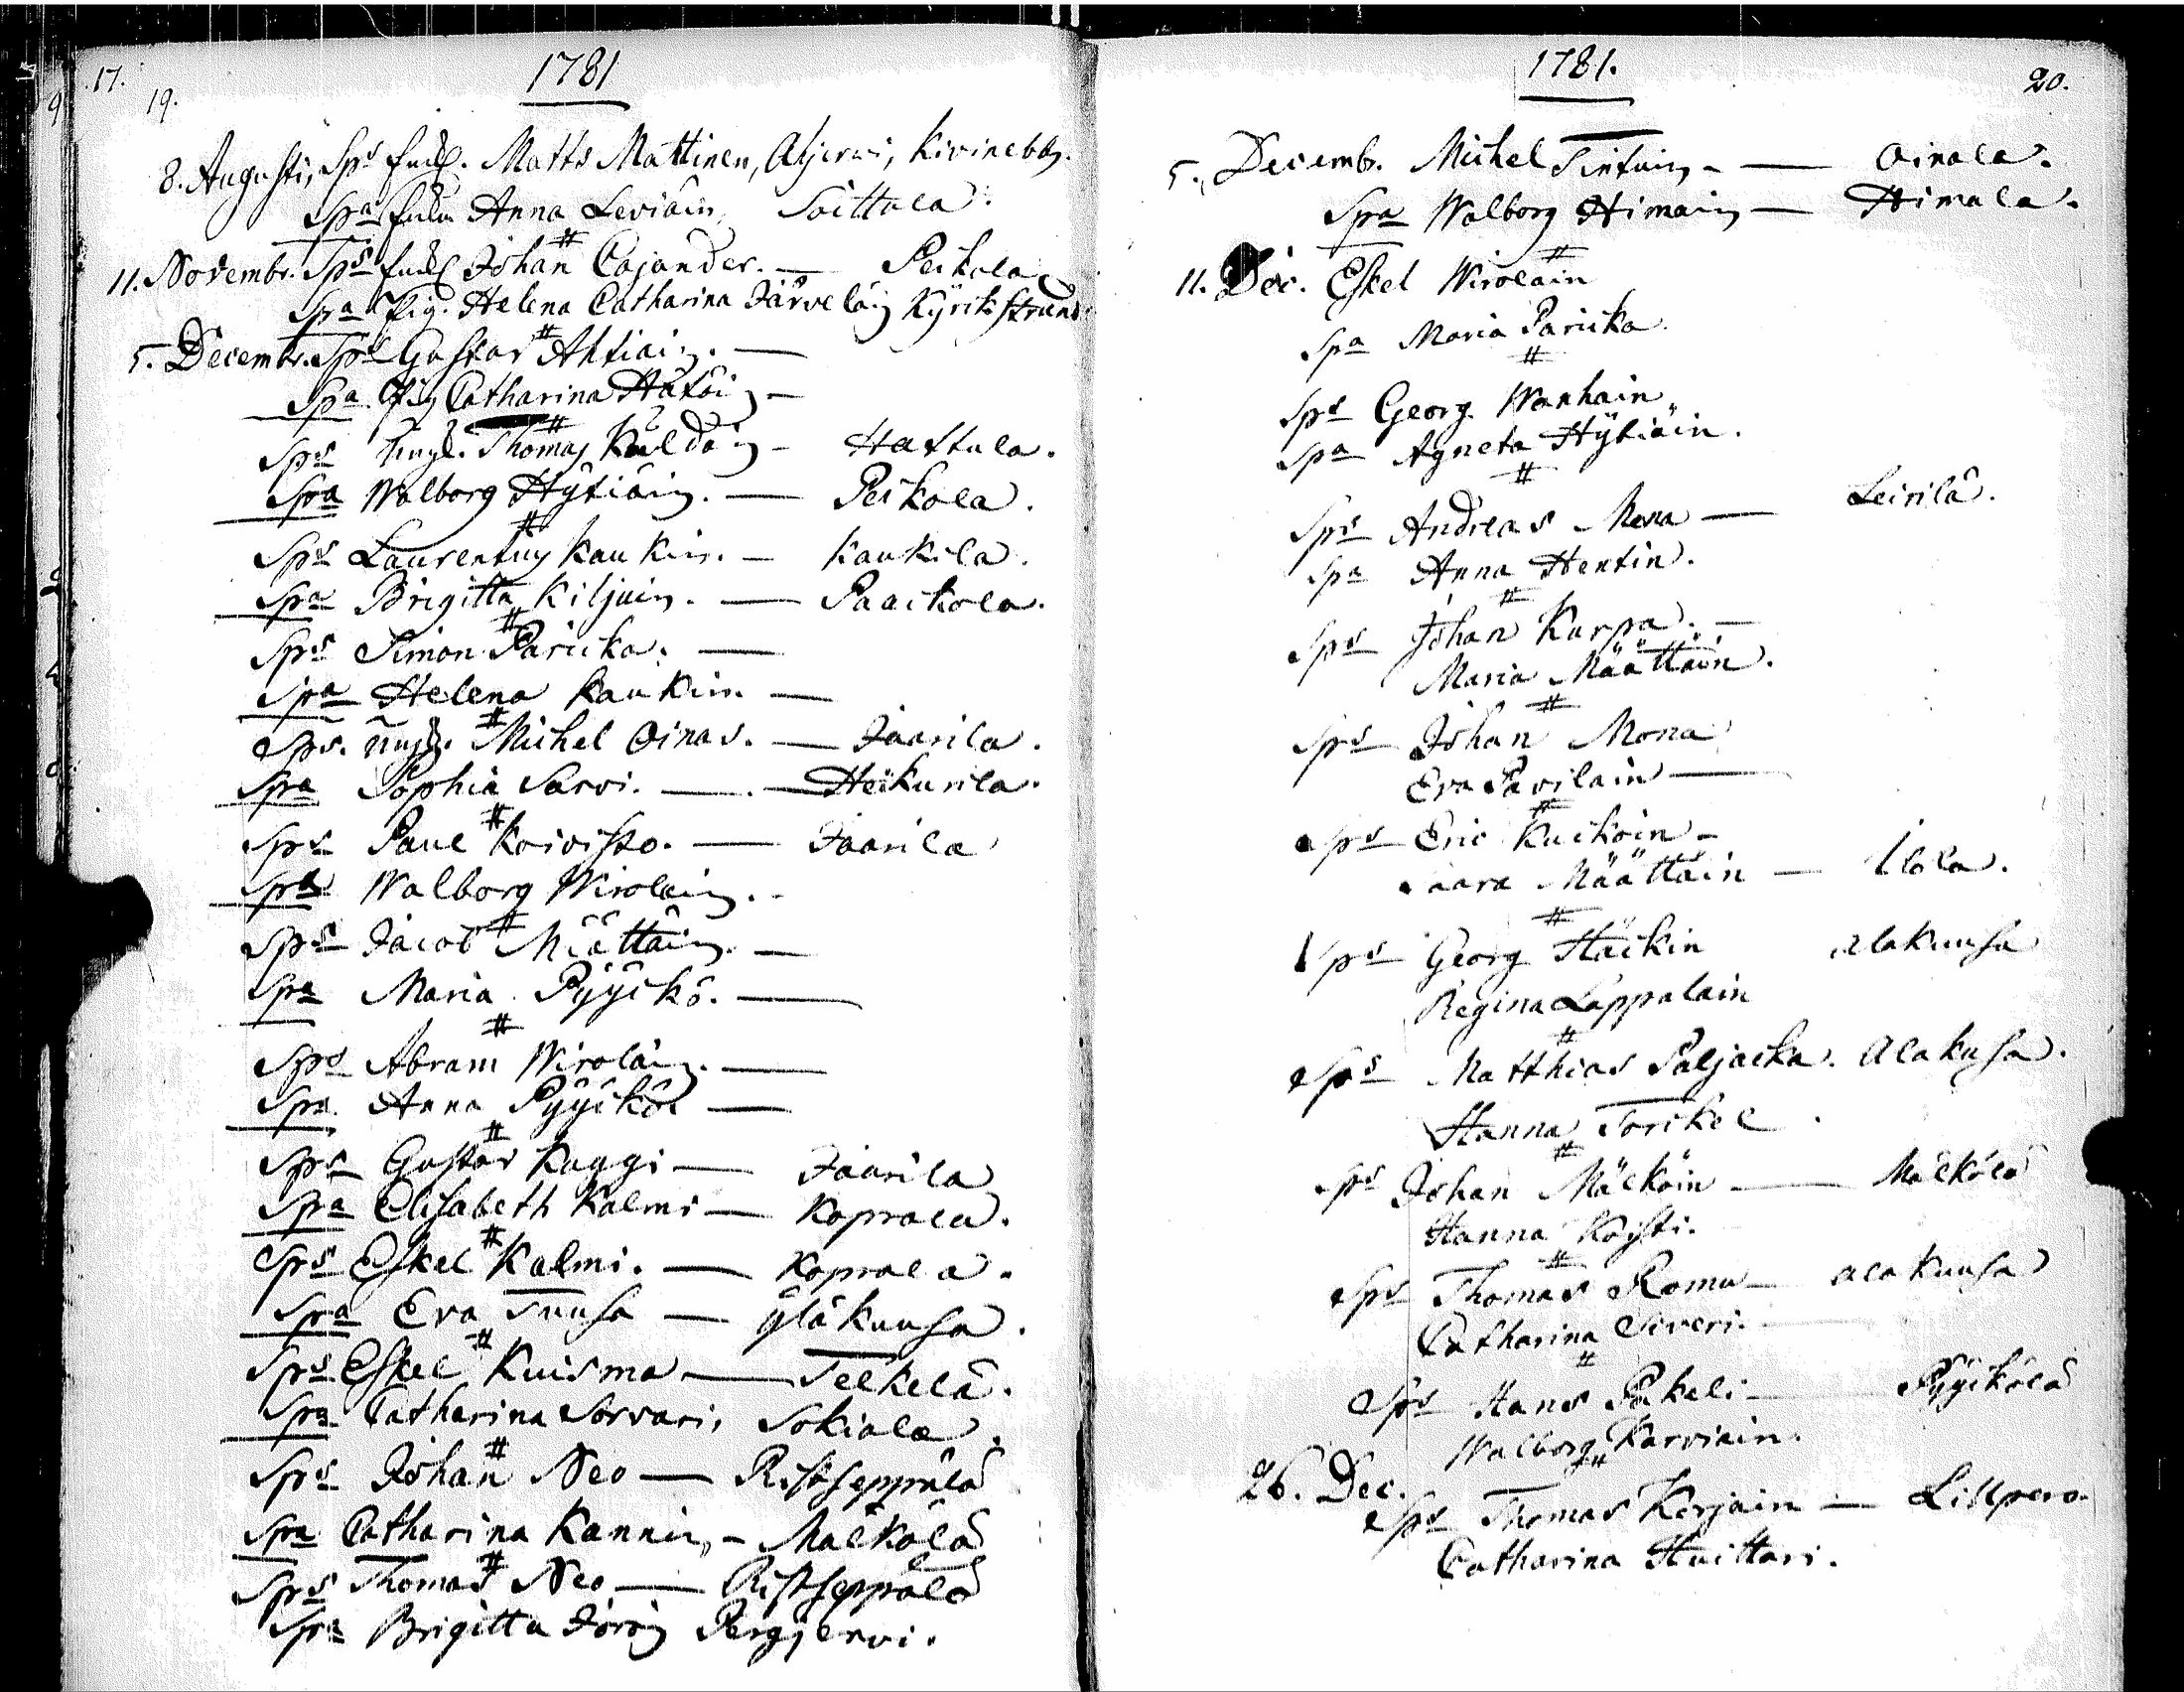 17.
19.
1781
8. Augusti, Sps Matts Mattinen, Kivinebb.
Spa Anna Leviäin, Soittola.
#
11. Novembr. Sps Johan Cajander. — Peikola
Spa Pig. Helena Catharina Järveläin Kyrikstrand
#
5. Decembr. Sps Gustav Ahtiain. —
Spa Catharina Hätöin —
#
Sps Thomas — Hattula.
Spa Walborg Hytiäin. — Peikola.
#
Sps Laurentius Kaukin. — Kaukila.
Spa Brigitta Kiljuin. — Paaikola.
#
Sps Simon Pariika. —
Spa Helena Kaukin —
#
Sps. Michel Oinas. — Jaarila.
Spa Sophia Sarvi. — Heikurila.
#
Sps Paul Koivisto. — Jaarila
Spa Walborg Wirolain.
#
Sps Jacob Määttäin. —
Spa Maria Pyyikö. —
#
Sps Abram Wirolain. —
Spa Anna Pyyikö —
#
Sps Gustav Kaggi — Jaarila
Spa Elisabeth Kalmi — Koprala.
#
Sps Eskel Kalmi. — Koprala.
Spa Eva Tuusa — Yläkuusa.
#
Sps Eskel Kuisma — Telkelä.
Spa Catharina Sorvari, Sokiala.
#
Sps Johan Neo — Ristseppälä
Spa Catharina Kannin, — Mälkölä
#
Sps Thomas Neo — Ristseppälä
Spa Brigitta Pergjervi.
1781.
20.
5. Decemb. Michel — Oinala.
Spa Walborg Himain — Himala.
#
11. Dec. Eskel Wirolain
Spa Maria Pariika.
#
Sps Georg Wanhain
Spa Agneta Hytiäin.
#
Sps Andreas — Leinilä.
Spa Anna Hentin.
#
Sps Johan Kurpa. —
Maria Määttäin.
#
Sps Johan Mona
Eva Pavilain —
#
Sps Eric Kuikoin —
Saara Määttäin — Ilola.
#
Sps Georg Häikin alakuusa
Regina Lappalain
#
Sps Matthias Paljacka. Alakusa.
Hanna Torikel.
#
Sps Johan Mälköin — Mälkölä
Hanna Kosti.
#
Sps Thomas Romu — alakuusa
Catharina Siveri.
#
Sps Hans Pukeli — Pyyikölä
Walborg Karviain.
#
26. Dec.
Sps Thomas Korjain — Lillpero.
Catharina Huittari.